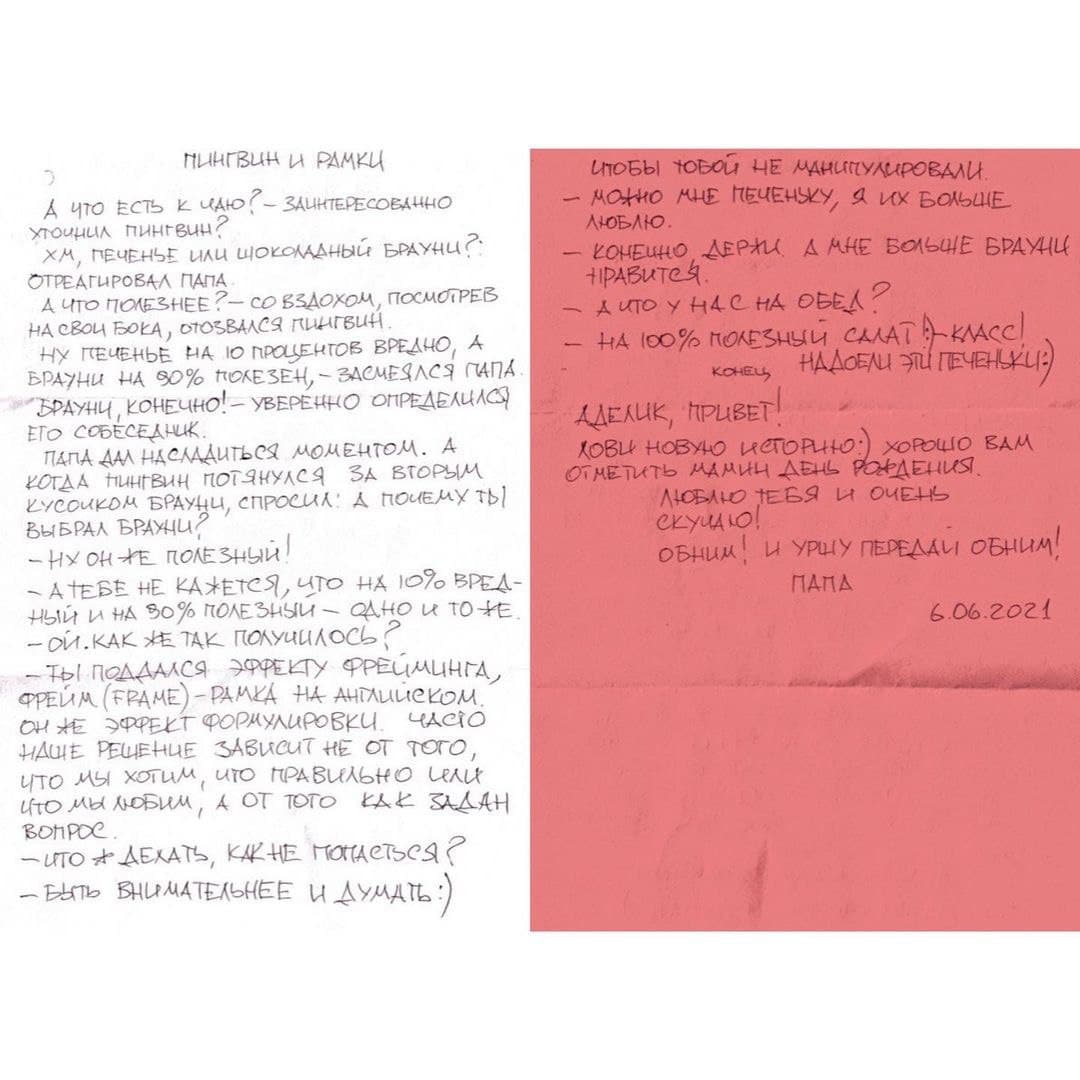 ПИНГВИН И РАМКИ
А ЧТО ЕСТЬ К ЧАЮ? – ЗАИНТЕРЕСОВАННО
УТОЧНИЛ ПИНГВИН?
ХМ, ПЕЧЕНЬЕ ИЛИ ШОКОЛАДНЫЙ БРАУНИ?:
ОТРЕАГИРОВАЛ ПАПА.
А ЧТО ПОЛЕЗНЕЕ? – СО ВЗДОХОМ, ПОСМОТРЕВ
НА СВОИ БОКА, ОТОЗВАЛСЯ ПИНГВИН.
НУ ПЕЧЕНЬЕ НА 10 ПРОЦЕНТОВ ВРЕДНО, А
БРАУНИ НА 90% ПОЛЕЗЕН, – ЗАСМЕЯЛСЯ ПАПА.
БРАУНИ, КОНЕЧНО! – УВЕРЕННО ОПРЕДЕЛИЛСЯ
ЕГО СОБЕСЕДНИК.
ПАПА ДАЛ НАСЛАДИТЬСЯ МОМЕНТОМ. А
КОГДА ПИНГВИН ПОТЯНУЛСЯ ЗА ВТОРЫМ
КУСОЧКОМ БРАУНИ, СПРОСИЛ: А ПОЧЕМУ ТЫ
ВЫБРАЛ БРАУНИ?
– НУ ОН ЖЕ ПОЛЕЗНЫЙ!
– А ТЕБЕ НЕ КАЖЕТСЯ, ЧТО НА 10% ВРЕД-
НЫЙ И НА 90% ПОЛЕЗНЫЙ – ОДНО И ТО ЖЕ.
– ОЙ. КАК ЖЕ ТАК ПОЛУЧИЛОСЬ?
– ТЫ ПОДДАЛСЯ ЭФФЕКТУ ФРЕЙМИНГА,
ФРЕЙМ (FRAME) – РАМКА НА АНГЛИЙСКОМ.
ОН ЖЕ ЭФФЕКТ ФОРМУЛИРОВКИ. ЧАСТО
НАШЕ РЕШЕНИЕ ЗАВИСИТ НЕ ОТ ТОГО,
ЧТО МЫ ХОТИМ, ЧТО ПРАВИЛЬНО ИЛИ
ЧТО МЫ ЛЮБИМ, А ОТ ТОГО КАК ЗАДАН
ВОПРОС.
– ЧТО Ж ДЕЛАТЬ, КАК НЕ ПОПАСТЬСЯ?
– БЫТЬ ВНИМАТЕЛЬНЕЕ И ДУМАТЬ :)
ЧТОБЫ ТОБОЙ НЕ МАНИПУЛИРОВАЛИ.
– МОЖНО МНЕ ПЕЧЕНЬКУ, Я ИХ БОЛЬШЕ
ЛЮБЛЮ.
– КОНЕЧНО, ДЕРЖИ. А МНЕ БОЛЬШЕ БРАУНИ
НРАВИТСЯ.
– А ЧТО У НАС НА ОБЕД?
– НА 100% ПОЛЕЗНЫЙ САЛАТ! :) – КЛАСС!
НАДОЕЛИ ЭТИ ПЕЧЕНЬКИ :)
КОНЕЦ
АДЕЛИК, ПРИВЕТ!
ЛОВИ НОВУЮ ИСТОРИЮ :) ХОРОШО ВАМ
ОТМЕТИТЬ МАМИН ДЕНЬ РОЖДЕНИЯ.
ЛЮБЛЮ ТЕБЯ И ОЧЕНЬ
СКУЧАЮ!
ОБНИМ! И УРШУ ПЕРЕДАЙ ОБНИМ!
ПАПА
6.06.2021